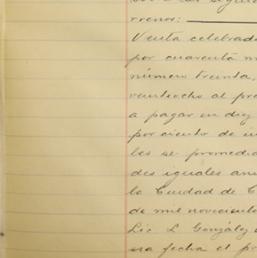 rrenos:
Venta celebrada
por cuarenta m
número treinta,
veintiocho al pro
a pagar en diez
por ciento de in
les se promedia
des iguales anu
la Ciudad de C
de mil noveciento
Lic. L. González
esa fecha el p